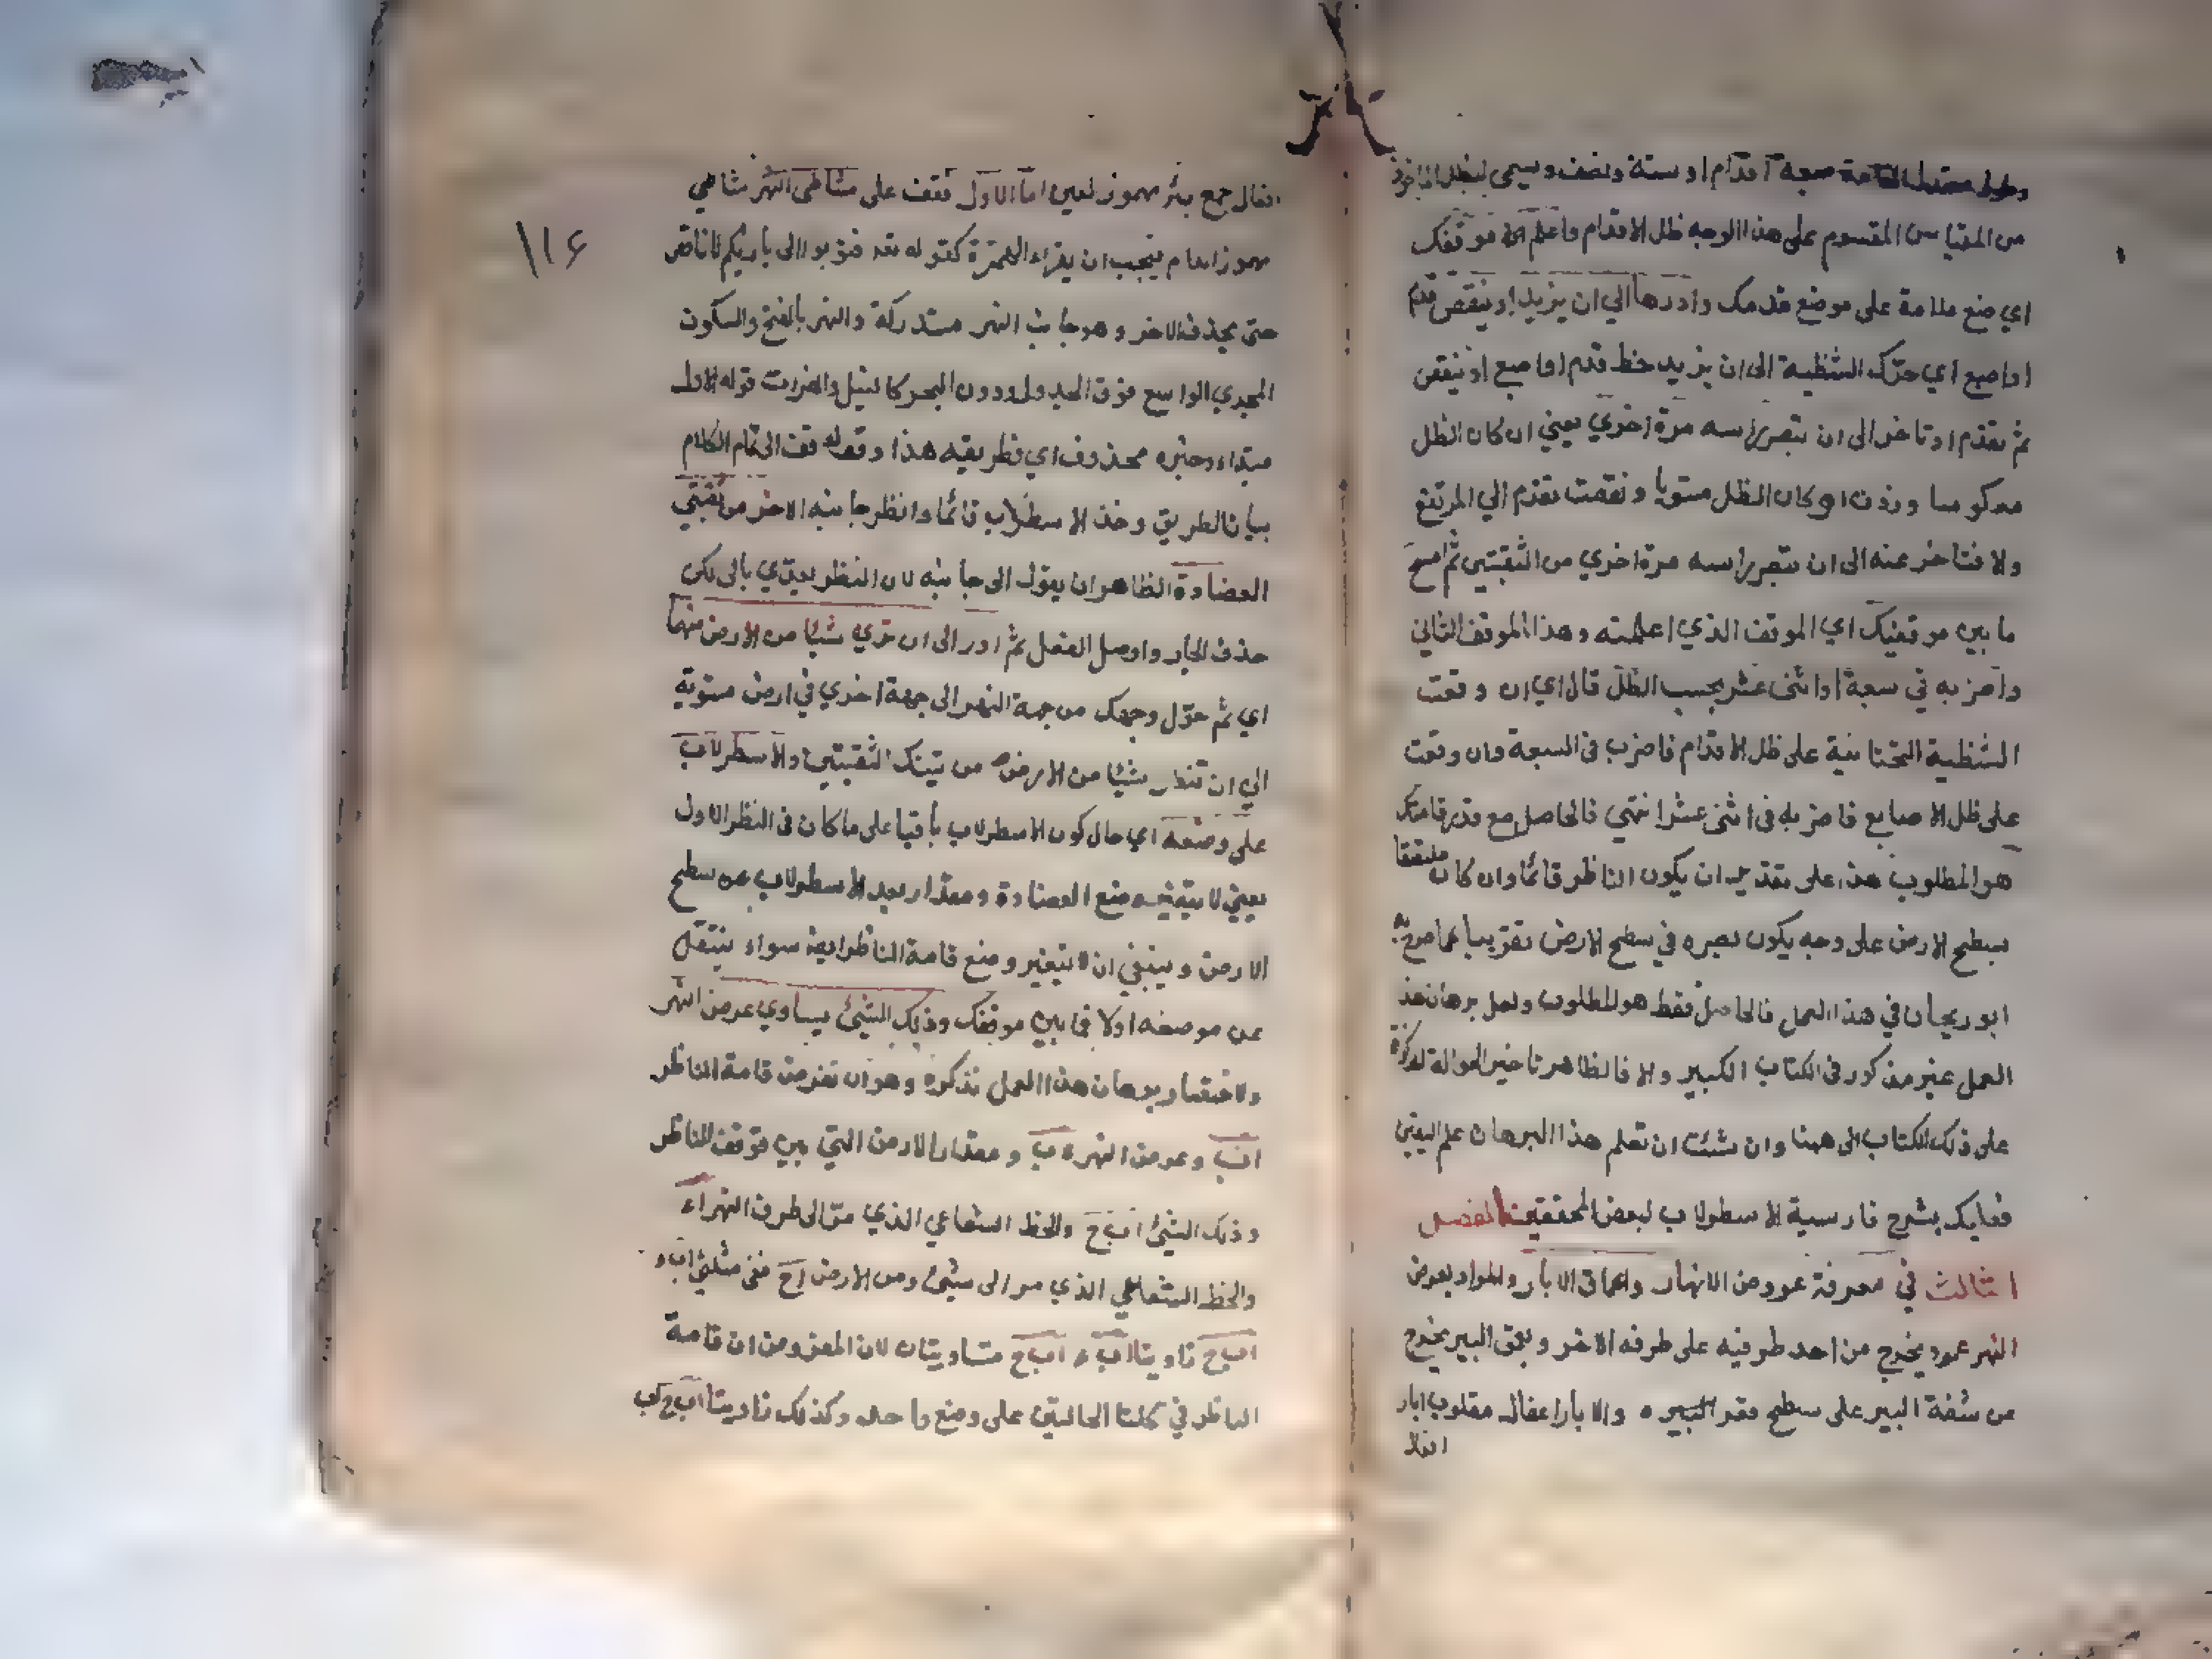 وطول معتدل القامة سبعة اقدام او ستة ونصف ويسمى الظل الماخوذ
من المقياس المقسوم على هذا الوجه ظل الاقدام واعلم موقفك
اي ضع علامة على موضع قدمك وادرها الي ان يزيد او ينقص قدم
او اصبع اي حرك الشظية الى ان يزيد خط قدم او اصبع او ينقص
ثم تقدم او تاخر الى ان تبصر راسه مرة اخري يعني ان كان الظل
معكوسا وزدت او كان الظل مستويا ونقصت تقدم الي المرتفع
ولا فتاخر عنه الى ان تبصر راسه مرة اخري من الثقبتين ثم امسح
ما بين موقفيك اي الموقف الذي اعلمته وهذا الموقف الثاني
واضربه في سبعة او اثنى عشر بحسب الظل قال اي ان وقعت
الشظية التحتانية على ظل الاقدام فاضرب في السبعة وان وقعت
على ظل الاصابع فاضربه في اثنى عشر انتهي فالحاصل مع قدر قامتك
هو المطلوب هذا على تقدير ان يكون الناظر قائما وان كان ملتصقا
بسطح الارض على وجه يكون بصره في سطح الارض تقريبا كما صرح به
ابو ريحان في هذا العمل فالحاصل فقط هو المطلوب ولعل برهان هذا
العمل غير مذكور في الكتاب الكبير والا فالظاهر تاخير الحوالة المذكورة
على ذلك الكتاب الى ههنا وان شئت ان تعلم هذا البرهان علم اليقين
فعليك بشرح فارسية الاسطرلاب لبعض المحققين الفصل
الثالث في معرفة عروض الانهار واعماق الابار والمراد بعرض
النهر عمود يخرج من احد طرفيه على طرفه الاخر وبعمق البير يخرج
من شفة البير على سطح قعر البيره والابار اعفال مقلوب ابار
افعال
افعال جمع بئر مهموز العين اما الاول فقف على شاطى النهر شاطي
مهموز اللام فيجب ان يقراء الهمزة كقوله تعه فتوبوا الى بارئكم لا ناقص
حتى يحذف الاخر وهو جانب النهر مستدركة والنهر بالفتح والسكون
المجري الواسع فوق الجدول ودون البحر كالنيل والفرات قوله الاول
مبتداء وخبره محذوف اي فطريقه هذا وقوله قف الى تمام الكلام
بيان الطريق وخذ الاسطرلاب قائما وانظر جانبه الاخر من ثقبتي
العضادة الظاهر ان يقول الى جانبه لان النظر يعدي بالى لكن
حذف الجار واوصل الفعل ثم ادر الى ان تري شيئا من الارض منهما
اي ثم حول وجهك من جهة النهر الى جهة اخري في ارض مستوية
الي ان تنظر شيئا من الارض من تينك الثقبتين والاسطرلاب
على وضعه اي حال كون الاسطرلاب باقيا على ما كان في النظر الاول
يعني لا يتغير وضع العضادة ومقدار بعد الاسطرلاب عن سطح
الارض وينبغي ان لا يتغير وضع قامة الناظر ايضا سواء ينتقل
عن موضعه اولا فما بين موقفك وذلك الشيئ يساوي عرض النهر
ولاختصار برهان هذا العمل نذكره وهو ان نفرض قامة الناظر
اب وعرض النهر ءب ومقدار الارض التي بين موقف الناظر
وذلك الشيئ اب ح والخط الشعاعي الذي مر الى طرف النهر اء
والخط الشعاعي الذي مر الى شيئ من الارض اح ففي مثلثي اب ء
اب ح زاويتا اب ء اب ح متساويتان لان المفروض ان قامة
الناظر في كلتا الحالتين على وضع واحد وكذلك زاويتا
١١٤